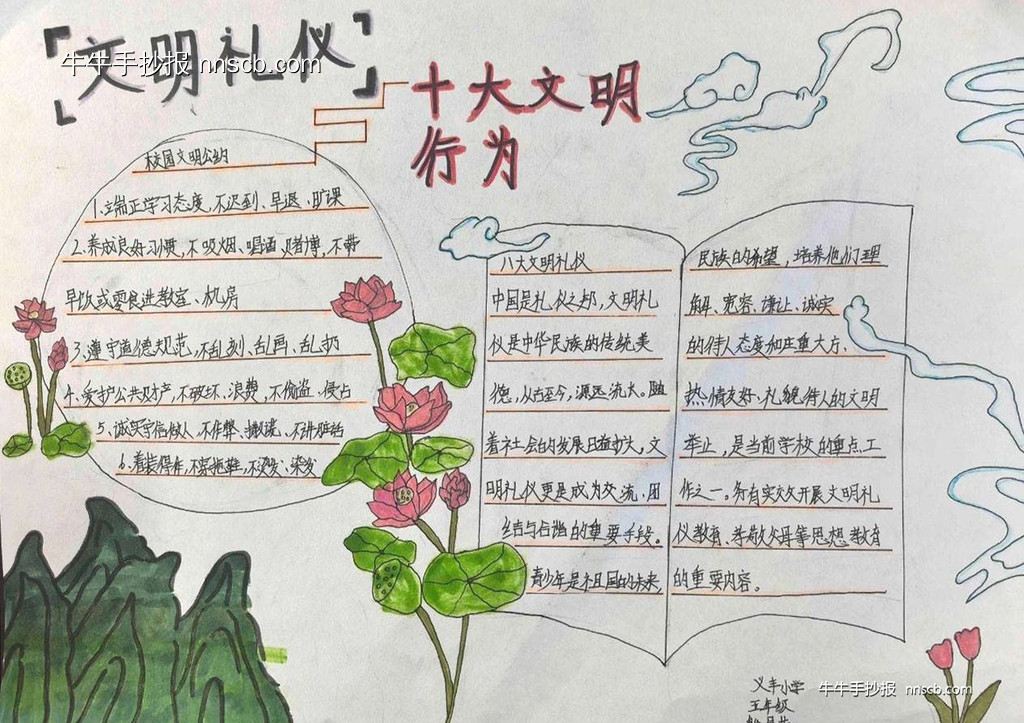 文明礼仪
牛牛手抄报 nnscb.com
十大文明
行为
校园文明公约
1、端正学习态度,不迟到、早退、旷课
2、养成良好习惯,不吸烟、喝酒、赌博,不带
早饮或零食进教室、机房
3、遵守道德规范,不乱刻、乱画、乱扔
4、爱护公共财产,不破坏、浪费,不偷盗、侵占
5、诚实守信做人,不作弊、撒谎,不讲脏话
6、着装得体,不穿拖鞋,不烫发、染发
八大文明礼仪
中国是礼仪之邦,文明礼
仪是中华民族的传统美
德,从古至今,源远流大。随
着社会的发展日益扩大,文
明礼仪更是成为交流、团
结与合谐的重要手段。
青少年是祖国的未来,
民族的希望,培养他们理
解、宽容、谦让、诚实
的待人态度和庄重大方、
热情友好、礼貌待人的文明
举止,是当前学校的重点工
作之一。务有实效开展文明礼
仪教育、孝敬父母等思想教育
的重要内容。
义丰小学
五年级
牛牛手抄报 nnscb.com